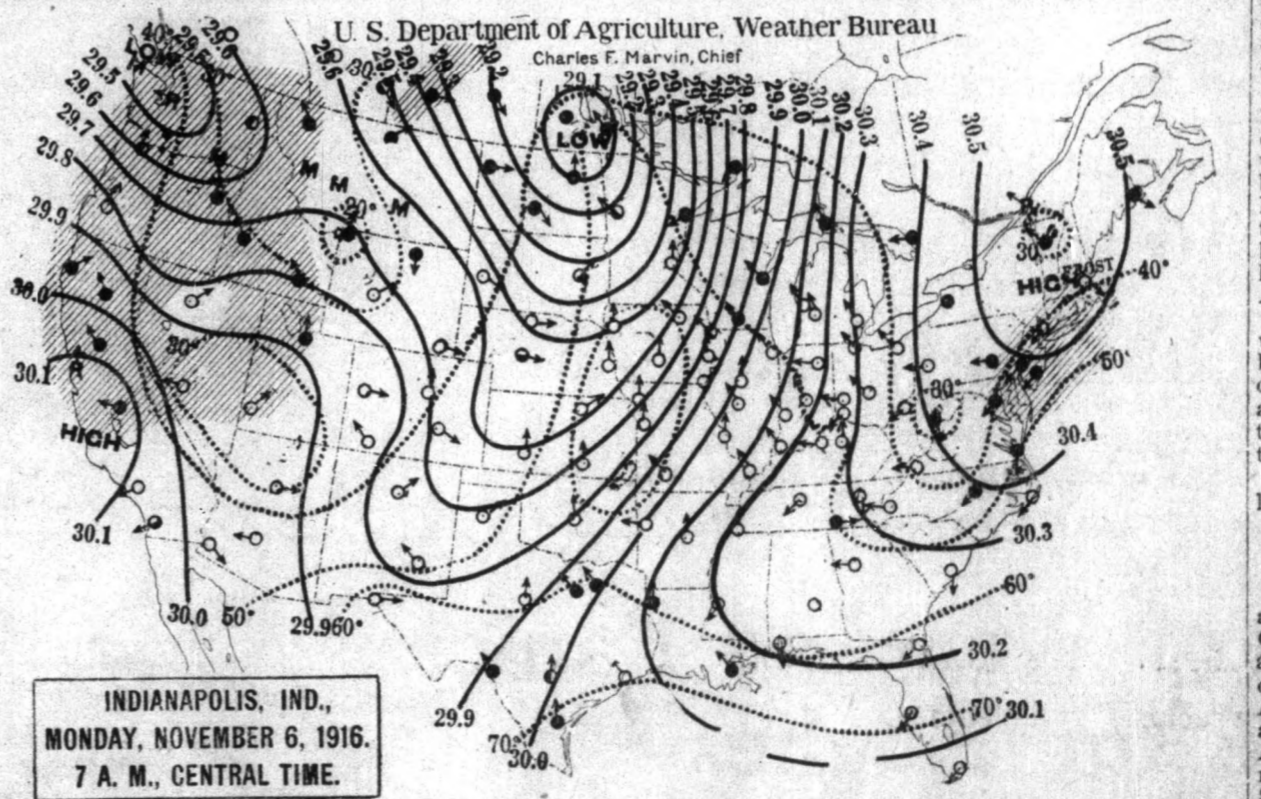 U. S. Department of Agriculture, Weather Bureau
Charles F. Marvin, Chief
40°
LOW
29.5
29.6
29.5
29.6
29.7
29.8
29.9
30.0
30.1
HIGH
30.1
29.6
30°
29.2
29.1
LOW
29.8
29.9
30.0
30.1
30.2
30.3
30.4
30.5
30.5
M
M
M
30°
30°
R
30
HIGH
FROST
40°
50°
30°
30.4
30.3
60°
30.2
70°
30.1
30.0
50°
29.9
60°
29.9
70°
30.0
INDIANAPOLIS, IND.,
MONDAY, NOVEMBER 6, 1916.
7 A. M., CENTRAL TIME.